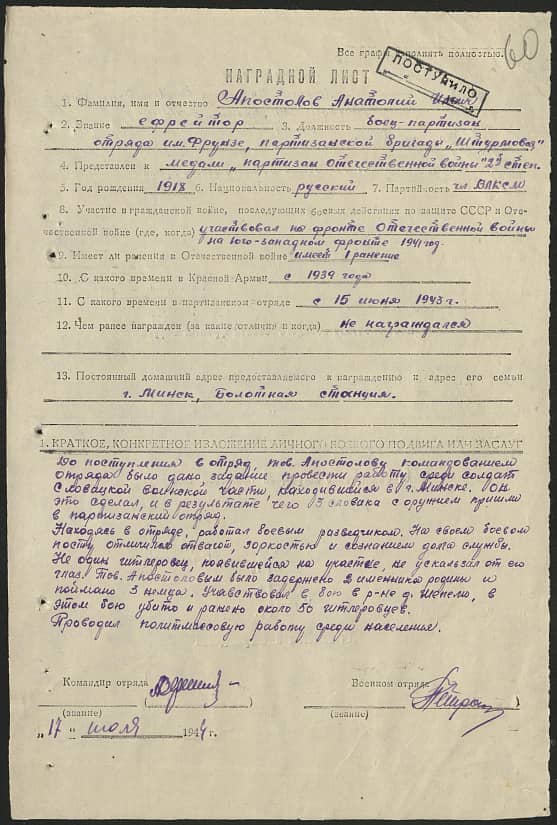 60
Все графы заполнять полностью.
ПОСТУПИЛО
НАГРАДНОЙ ЛИСТ
1. Фамилия, имя и отчество Апостолов Анатолий
2. Звание ефрейтор 3. Должность боец-партизан
отряда им. Фрунзе, партизанской бригады „Штурмовая"
4. Представлен к медали „партизан Отечественной войны" 2й степ.
5. Год рождения 1918 6. Национальность русский 7. Партийность чл. ВЛКСМ
8. Участие в гражданской войне, последующих боевых действиях по защите СССР и Оте-
чественной войне (где, когда) участвовал на фронте Отечественной войны
на юго-западном фронте 1941 год.
9. Имеет ли ранения в Отечественной войне имеет 1 ранение
10. С какого времени в Красной Армии с 1939 года
11. С какого времени в партизанском отряде с 15 июня 1943 г.
12. Чем ранее награжден (за какие отличия и когда) не награждался
13. Постоянный домашний адрес предоставляемого к награждению и адрес его семьи
г. Минск, Болотная станция.
1. КРАТКОЕ, КОНКРЕТНОЕ ИЗЛОЖЕНИЕ ЛИЧНОГО БОЕВОГО ПОДВИГА ИЛИ ЗАСЛУГ
До поступления в отряд, тов. Апостолову командованием
отряда было дано задание провести работу среди солдат
Словацкой воинской части, находившийся в г. Минске. Он
это сделал, и в результате чего 13 словака с оружием пришли
в партизанский отряд.
Находясь в отряде, работал боевым разведчиком. На своем боевом
посту отличился отвагой, зоркостью и сознанием долга службы.
Не один гитлеровец, появившейся на участке, не ускользал от его
глаз. Тов. Апостоловым было задержено 2 изменника родины и
поймано 3 немца. Учавствовал в бою в р-не д. Жепели, в
этом бою убито и ранено около 50 гитлеровцев.
Проводил политмассовую работу среди население.
Командир отряда Военком отряда
(звание) (звание)
„17" июля 1944 г.